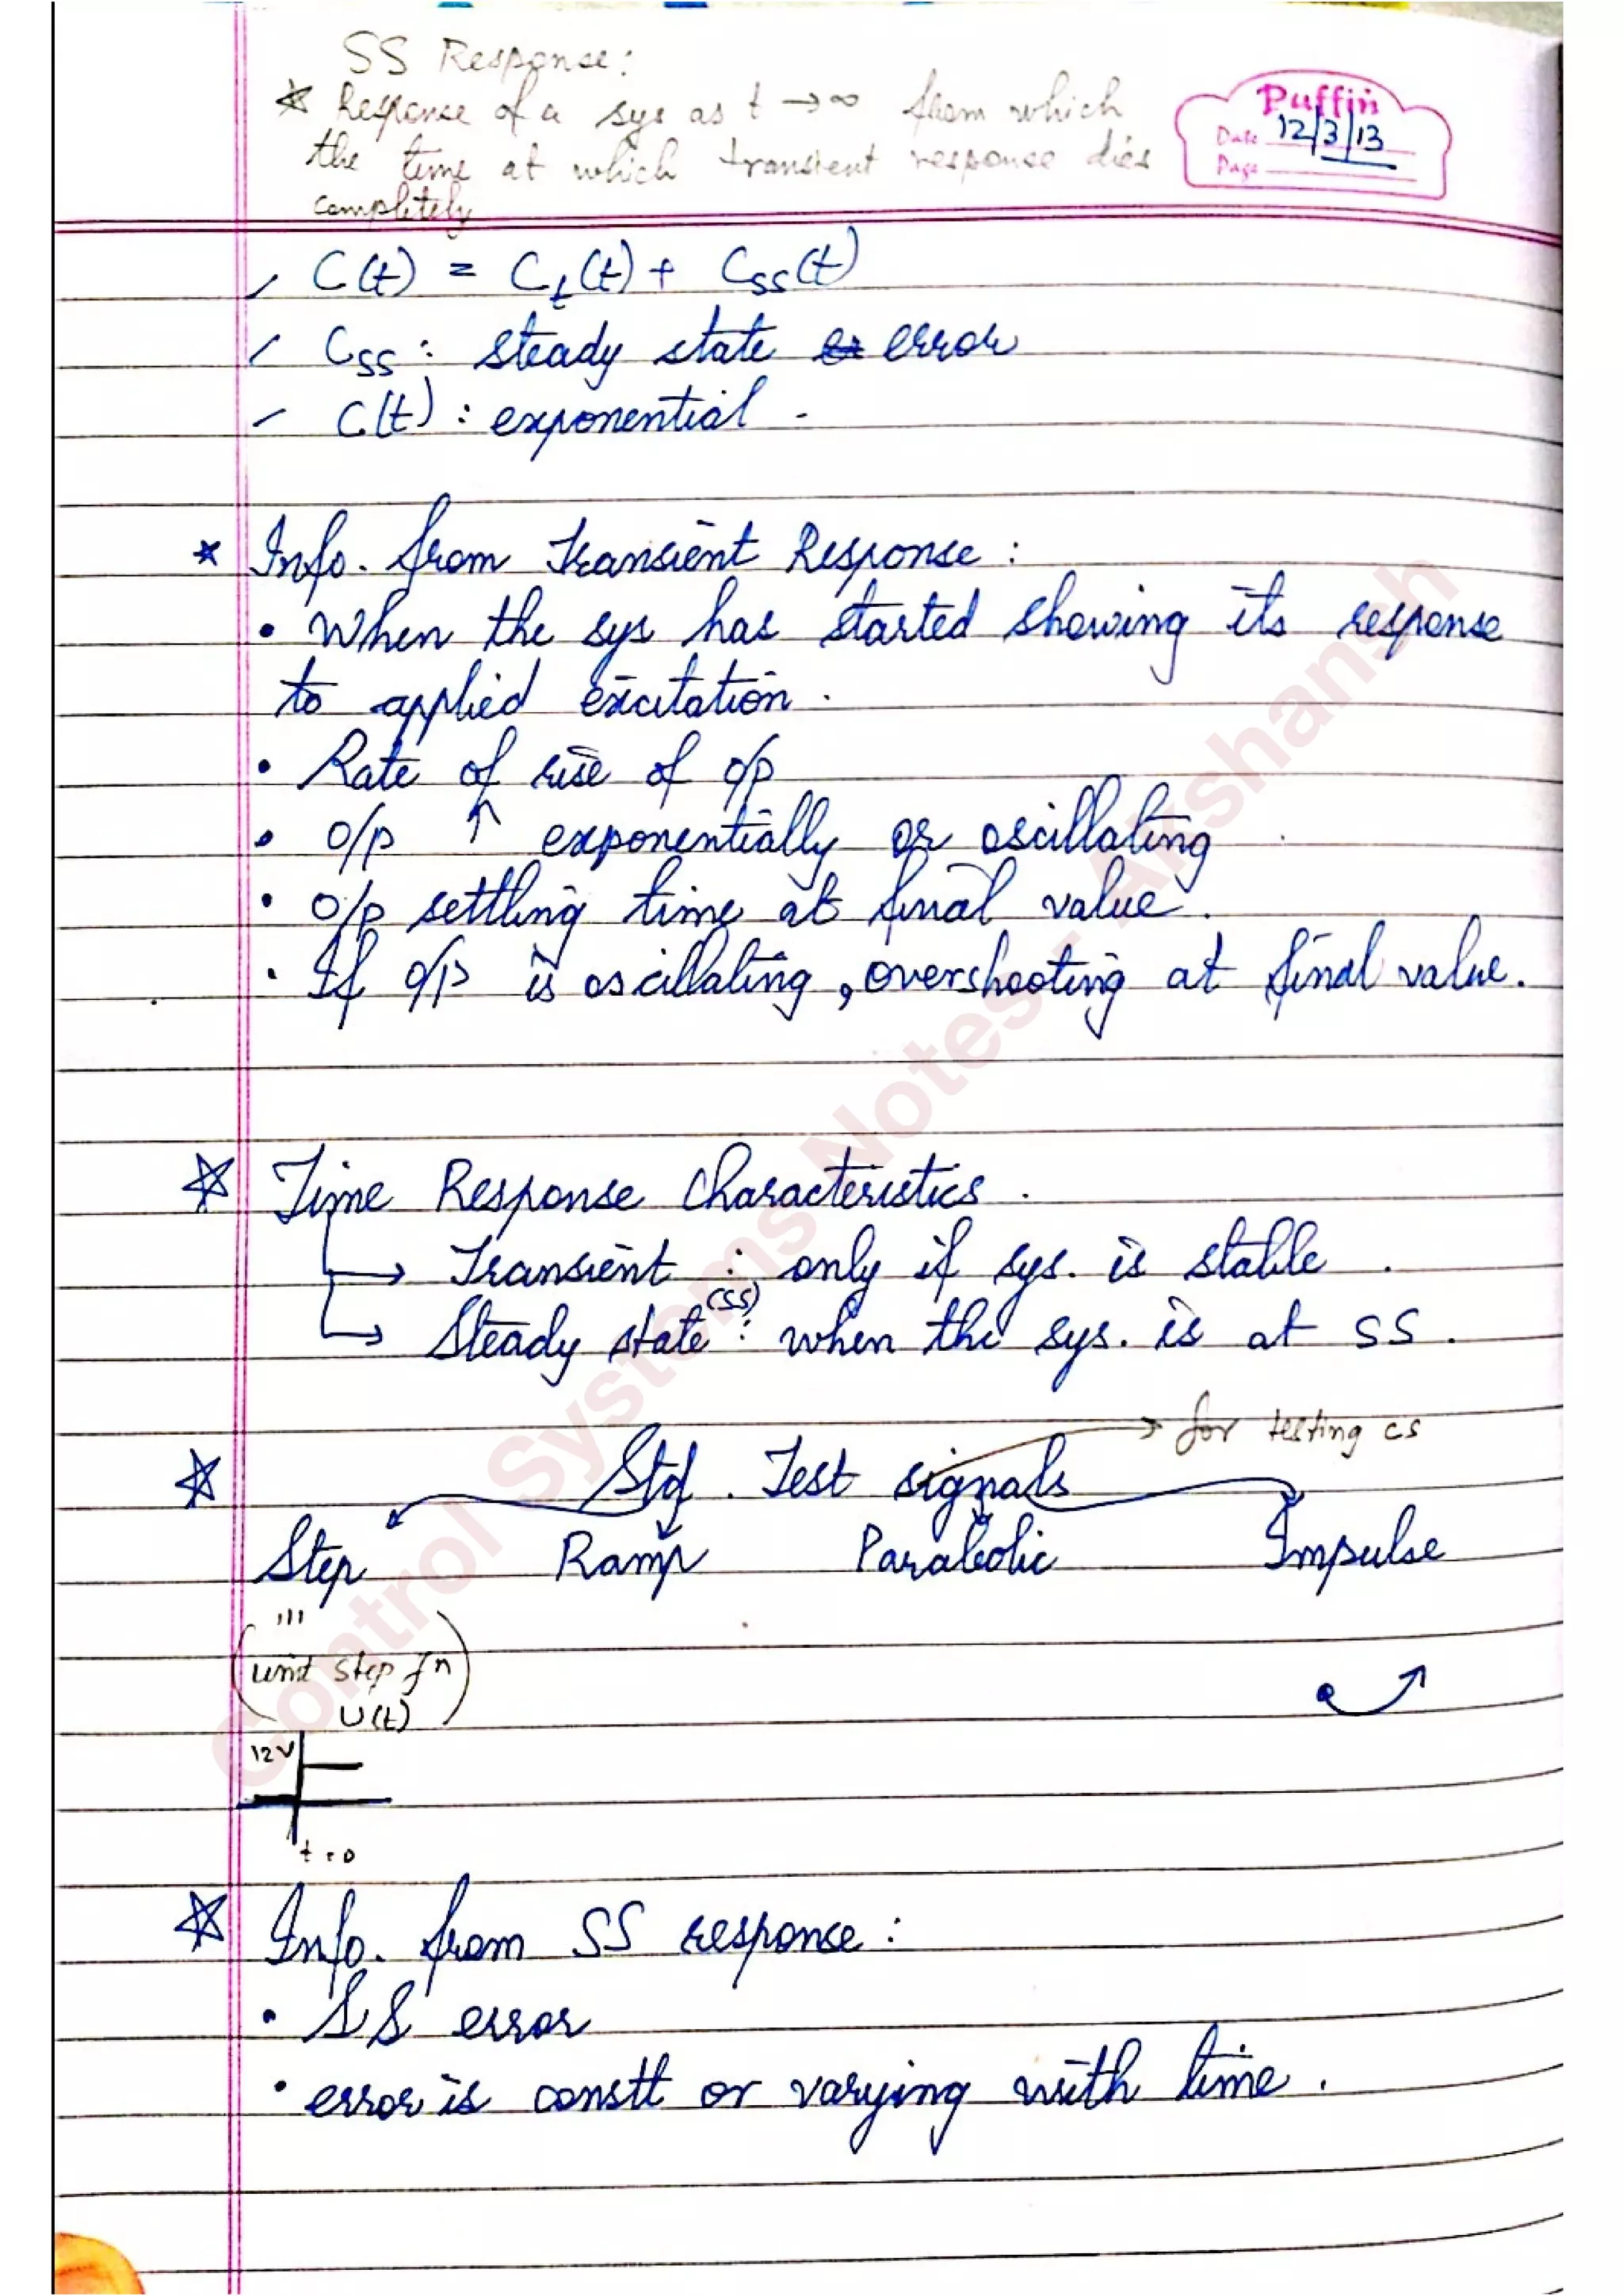 SS Response:
* Response of a sys as t → ∞ from which
the time at which transient response dies
completely
Puffin
Date 12/3/13
Page
C(t) = Ct(t) + Css(t)
Css : steady state error
C(t) : exponential -
* Info. from Transient Response :
• When the sys has started showing its response
to applied excitation.
• Rate of rise of o/p
• o/p ↑ exponentially or oscillating
• o/p settling time at final value.
• If o/p is oscillating, overshooting at final value.
☆ Time Response Characteristics.
→ Transient : only if sys. is stable.
→ Steady state (SS) : when the sys. is at SS.
→ for testing cs
☆ Std. Test signals
Step Ramp Parabolic Impulse
(unit step fn
U(t))
12V
t=0
☆ Info. from SS response :
• SS error
• error is constt or varying with time.
Control Systems Notes - Akshansh